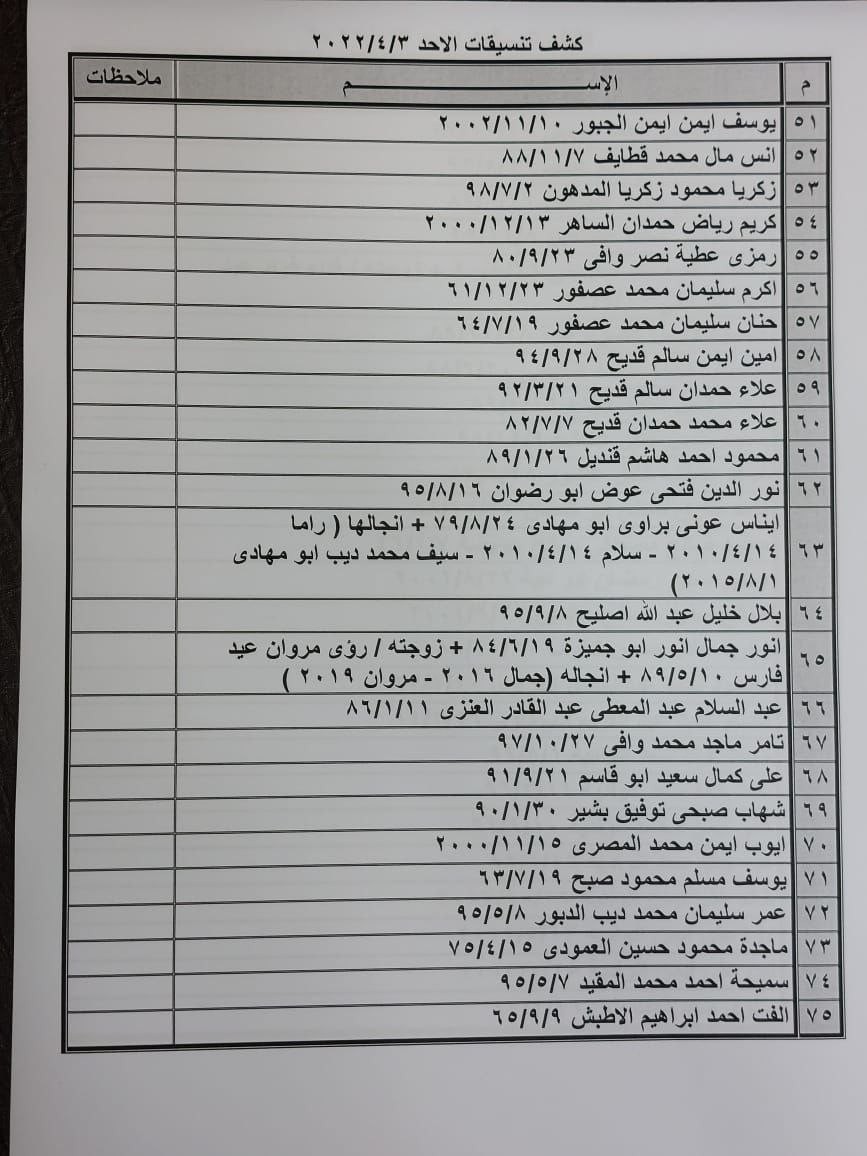 كشف تنسيقات الاحد ٢٠٢٢/٤/٣
م الإســــــــــم ملاحظات
٥١ يوسف ايمن ايمن الجبور ٢٠٠٢/١١/١٠
٥٢ انس مال محمد قطايف ٨٨/١١/٧
٥٣ زكريا محمود زكريا المدهون ٩٨/٧/٢
٥٤ كريم رياض حمدان الساهر ٢٠٠٠/١٢/١٣
٥٥ رمزى عطية نصر وافى ٨٠/٩/٢٣
٥٦ اكرم سليمان محمد عصفور ٦١/١٢/٢٣
٥٧ حنان سليمان محمد عصفور ٦٤/٧/١٩
٥٨ امين ايمن سالم قديح ٩٤/٩/٢٨
٥٩ علاء حمدان سالم قديح ٩٢/٣/٢١
٦٠ علاء محمد حمدان قديح ٨٢/٧/٧
٦١ محمود احمد هاشم قنديل ٨٩/١/٢٦
٦٢ نور الدين فتحى عوض ابو رضوان ٩٥/٨/١٦
٦٣ ايناس عونى براوى ابو مهادى ٧٩/٨/٢٤ + انجالها ( راما
٢٠١٠/٤/١٤ - سلام ٢٠١٠/٤/١٤ - سيف محمد ديب ابو مهادى
٢٠١٥/٨/١)
٦٤ بلال خليل عبد الله اصليح ٩٥/٩/٨
٦٥ انور جمال انور ابو جميزة ٨٤/٦/١٩ + زوجته / رؤى مروان عيد
فارس ٨٩/٥/١٠ + انجاله (جمال ٢٠١٦ - مروان ٢٠١٩ )
٦٦ عبد السلام عبد المعطى عبد القادر العنزى ٨٦/١/١١
٦٧ تامر ماجد محمد وافى ٩٧/١٠/٢٧
٦٨ على كمال سعيد ابو قاسم ٩١/٩/٢١
٦٩ شهاب صبحى توفيق بشير ٩٠/١/٣٠
٧٠ ايوب ايمن محمد المصرى ٢٠٠٠/١١/١٥
٧١ يوسف مسلم محمود صبح ٦٣/٧/١٩
٧٢ عمر سليمان محمد ديب الدبور ٩٥/٥/٨
٧٣ ماجدة محمود حسين العمودى ٧٥/٤/١٥
٧٤ سميحة احمد محمد المقيد ٩٥/٥/٧
٧٥ الفت احمد ابراهيم الاطبش ٦٥/٩/٩